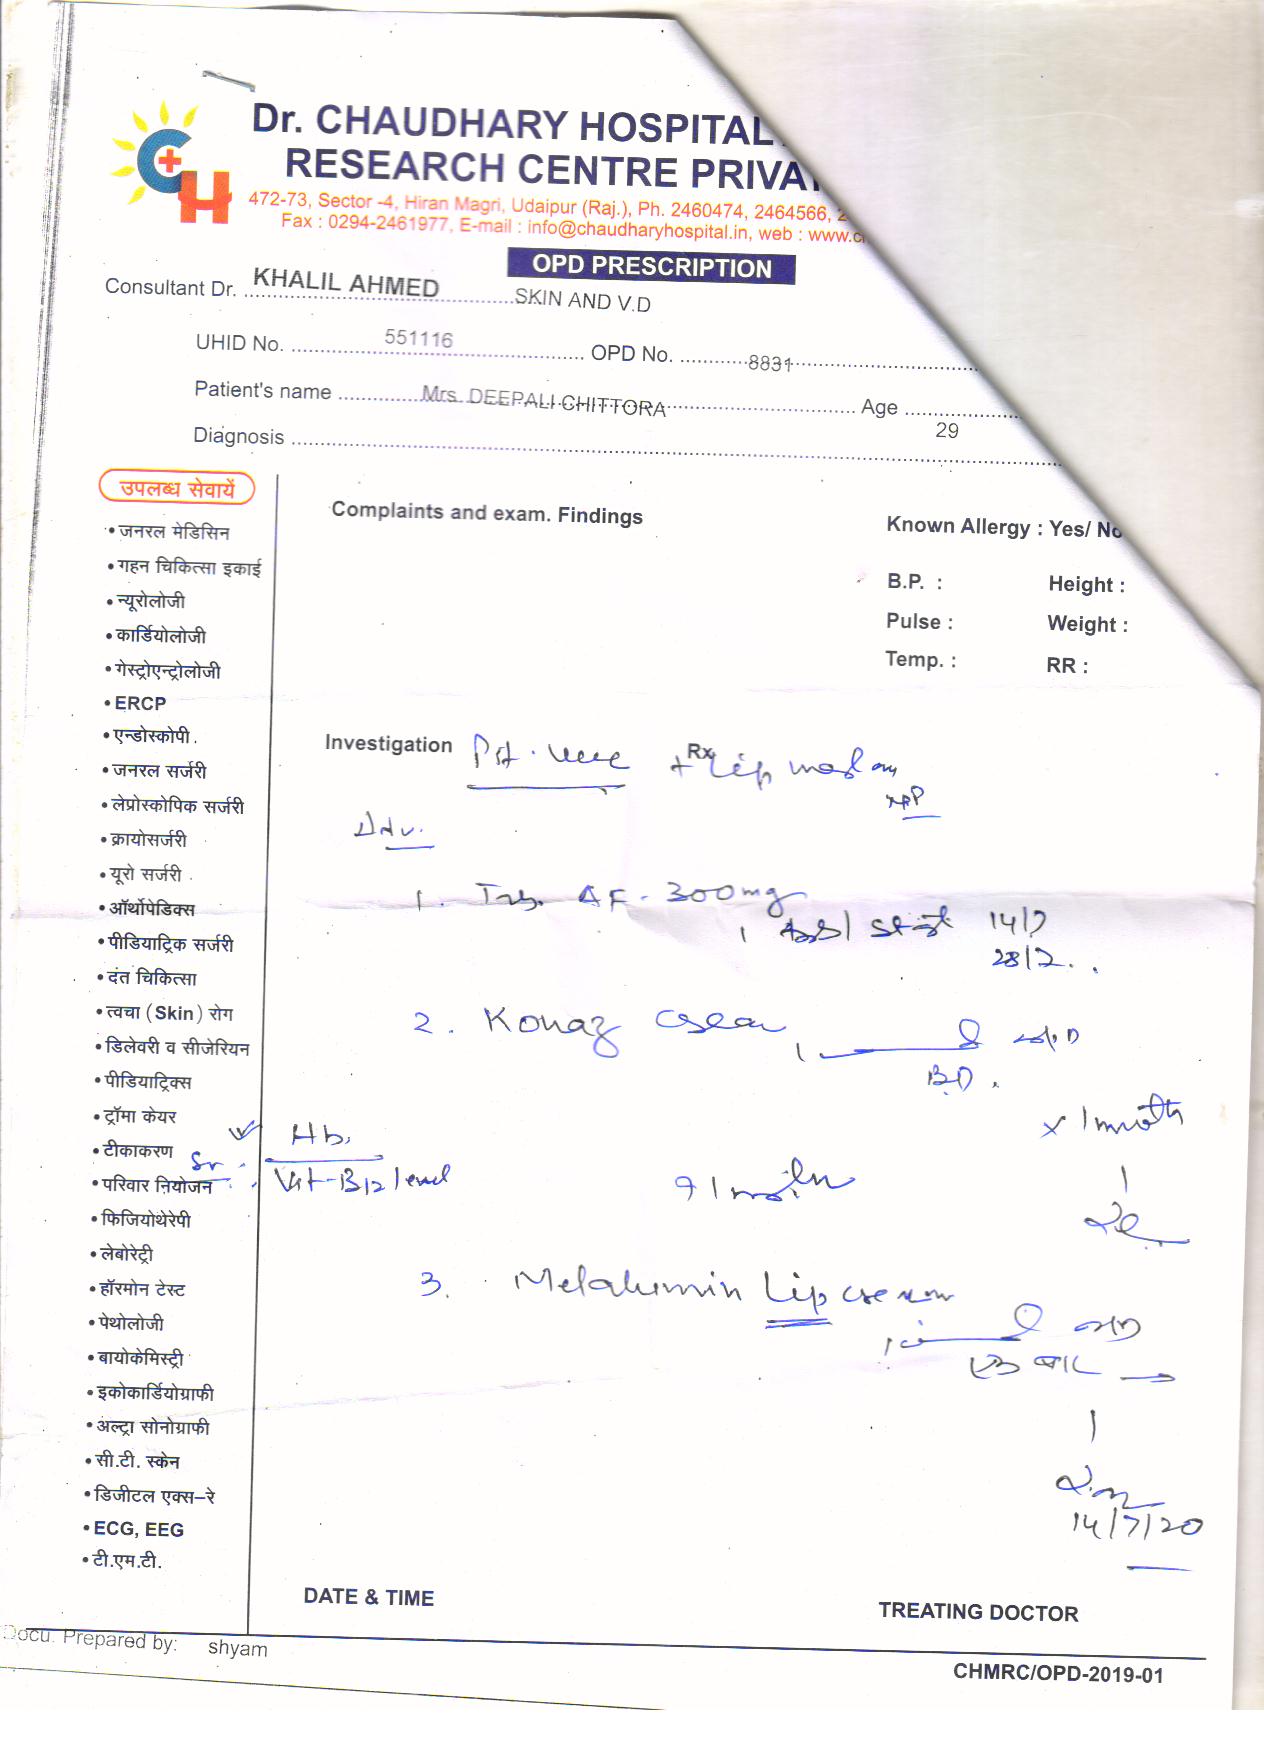 Dr. CHAUDHARY HOSPITAL
RESEARCH CENTRE PRIVA
472-73, Sector -4, Hiran Magri, Udaipur (Raj.), Ph. 2460474, 2464566, 2
Fax : 0294-2461977, E-mail : info@chaudharyhospital.in, web : www.c
OPD PRESCRIPTION
Consultant Dr. KHALIL AHMED SKIN AND V.D
UHID No. 551116 OPD No. 8831
Patient's name Mrs. DEEPALI CHITTORA Age 29
Diagnosis
उपलब्ध सेवायें
• जनरल मेडिसिन
• गहन चिकित्सा इकाई
• न्यूरोलोजी
• कार्डियोलोजी
• गेस्ट्रोएन्ट्रोलोजी
• ERCP
• एन्डोस्कोपी
• जनरल सर्जरी
• लेप्रोस्कोपिक सर्जरी
• क्रायोसर्जरी
• यूरो सर्जरी
• ऑर्थोपेडिक्स
• पीडियाट्रिक सर्जरी
• दंत चिकित्सा
• त्वचा (Skin) रोग
• डिलेवरी व सीजेरियन
• पीडियाट्रिक्स
• ट्रॉमा केयर
• टीकाकरण
• परिवार नियोजन
• फिजियोथेरेपी
• लेबोरेट्री
• हॉरमोन टेस्ट
• पेथोलोजी
• बायोकेमिस्ट्री
• इकोकार्डियोग्राफी
• अल्ट्रा सोनोग्राफी
• सी.टी. स्केन
• डिजीटल एक्स–रे
• ECG, EEG
• टी.एम.टी.
Complaints and exam. Findings
Known Allergy : Yes/ No
B.P. : Height :
Pulse : Weight :
Temp. : RR :
Investigation Rx Lip
Adv.
1. Tab. AF-300mg
14/7
28/7
2. Konaz Cream
B.D.
x 1 month
Hb.
Sr. Vit-B12 level
3. Melalumin Lip cream
14/7/20
DATE & TIME
TREATING DOCTOR
Docu. Prepared by: shyam
CHMRC/OPD-2019-01